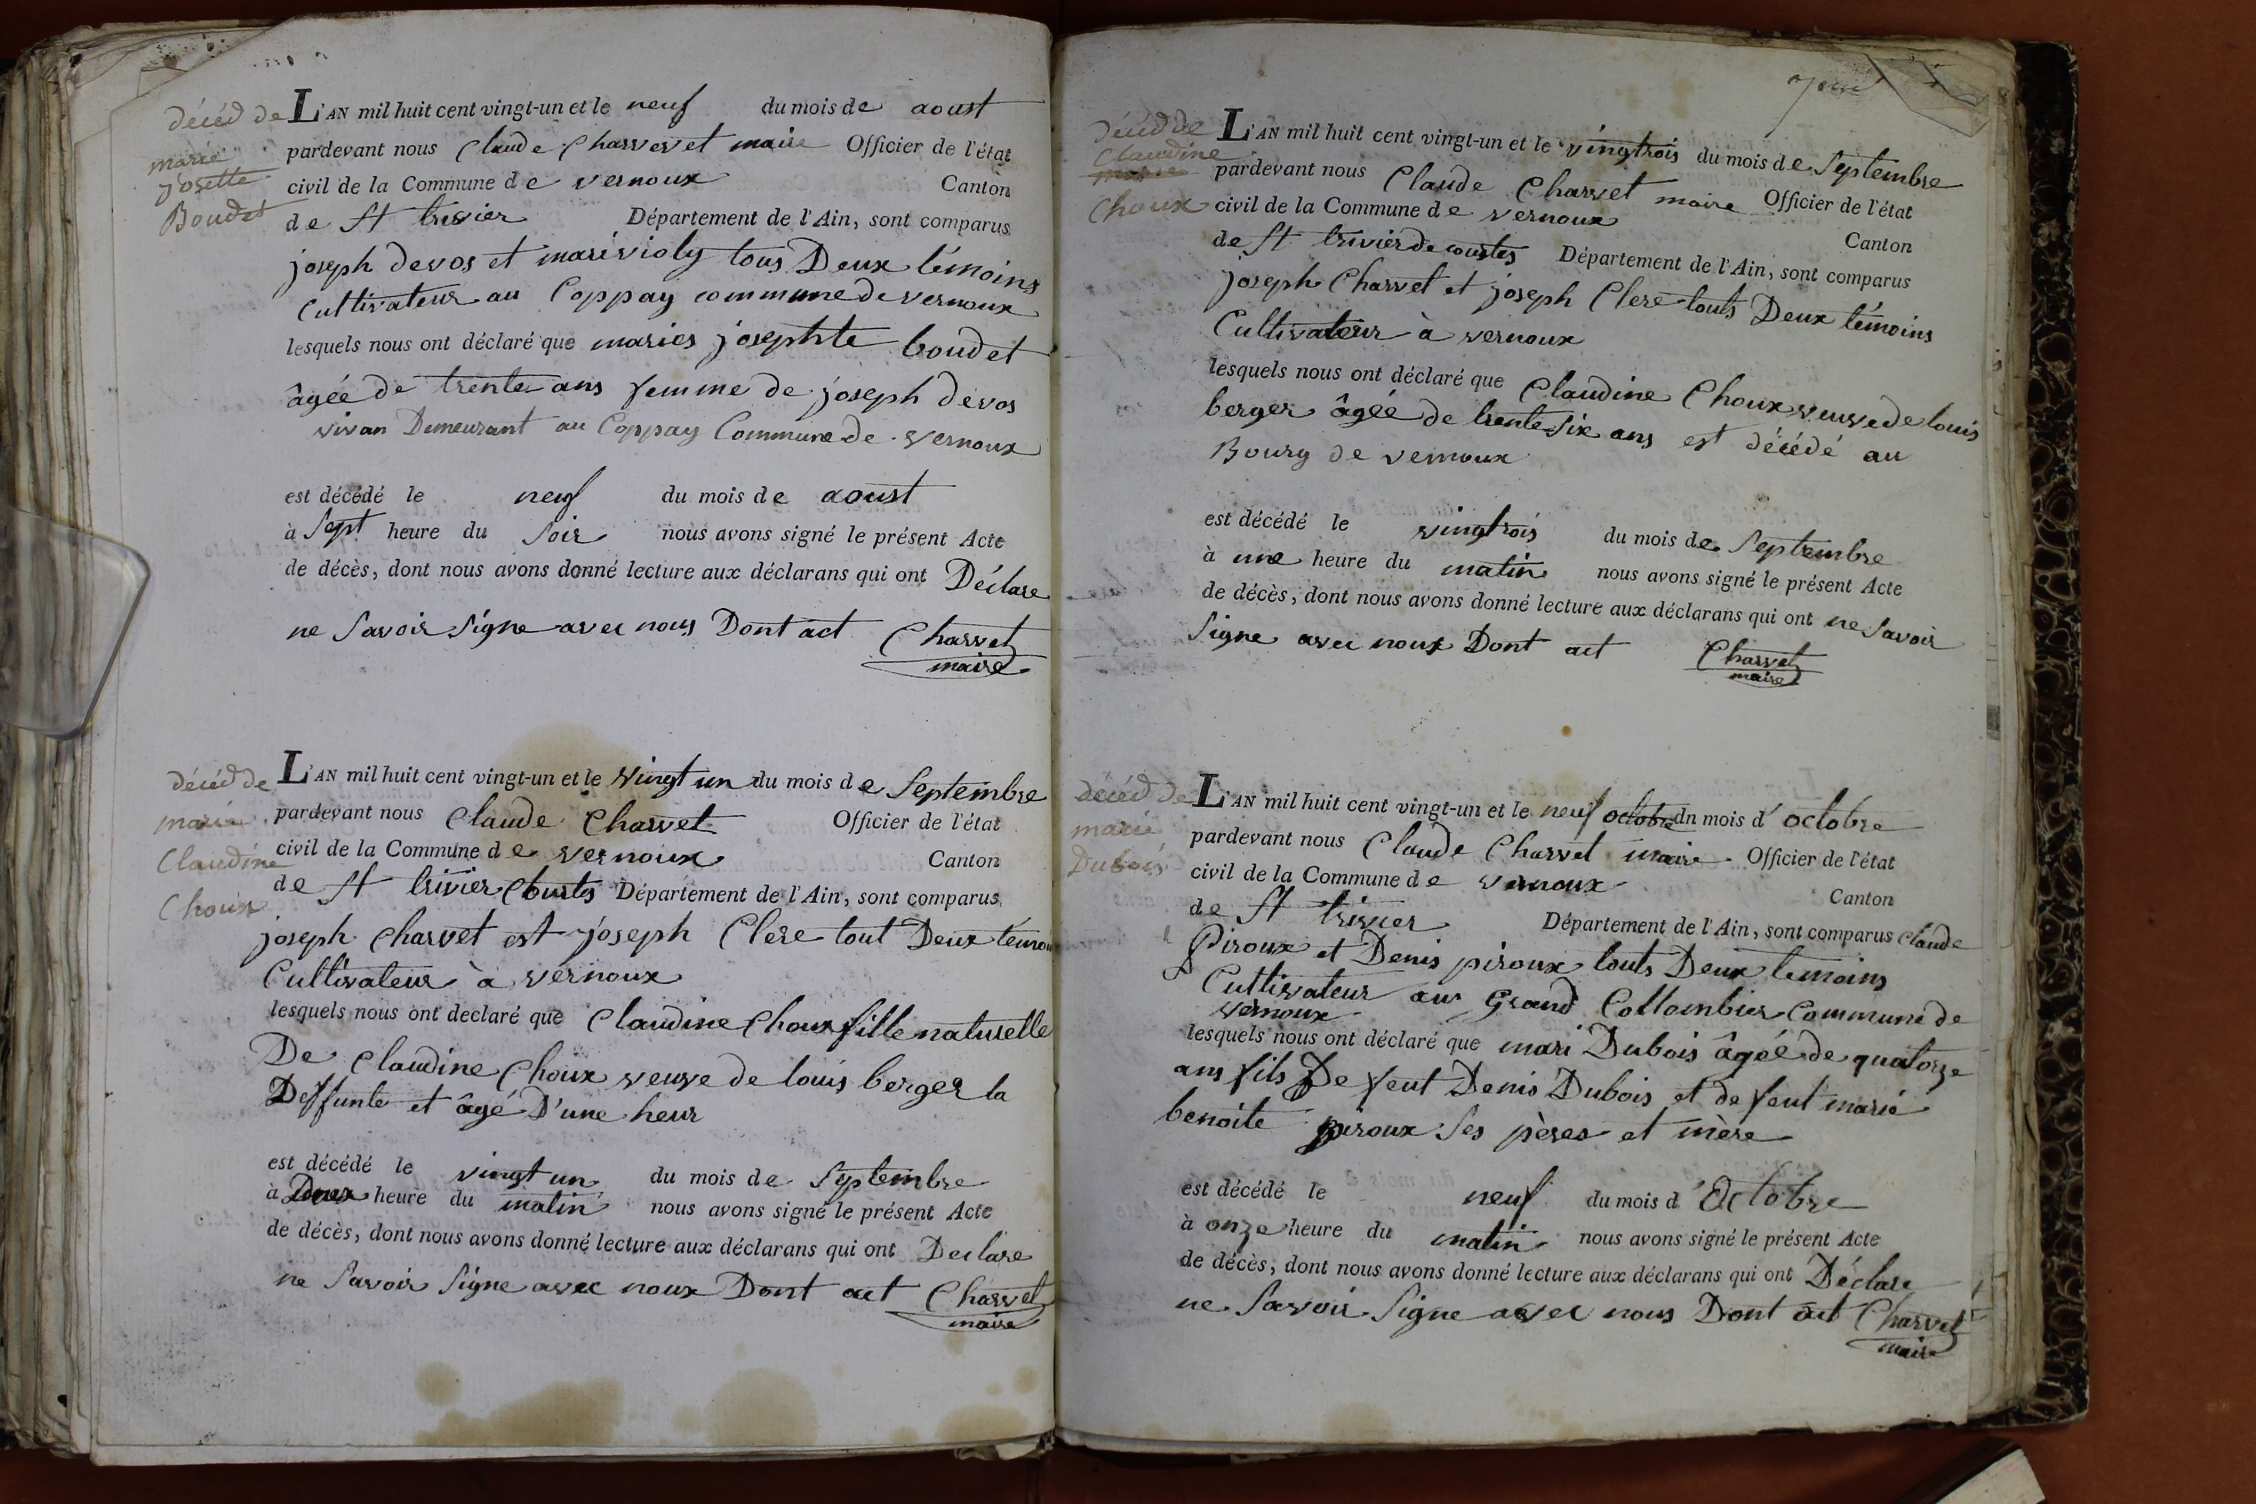 décéd de
marie
josette
Boudet
L'AN mil huit cent vingt-un et le neuf du mois de aoust
pardevant nous Claude Charvet maire Officier de l'état
civil de la Commune de vernoux Canton
de St trivier Département de l'Ain, sont comparus
joseph devos et marivioly tous Deux témoins
Cultivateur au Coppay commune de vernoux
lesquels nous ont déclaré que maries josephte boudet
âgéé de trente ans femme de joseph devos
vivan Demeurant au Coppay Commune de vernoux
est décédé le neuf du mois de aoust
à Sept heure du Soir nous avons signé le présent Acte
de décès, dont nous avons donné lecture aux déclarans qui ont Déclare
ne Savoir Signe avec nous Dont act Charvet
maire
décéd de
marie
Claudine
Choux
L'AN mil huit cent vingt-un et le Vingt un du mois de Septembre
pardevant nous Claude Charvet Officier de l'état
civil de la Commune de vernoux Canton
de St trivier Courtes Département de l'Ain, sont comparus
joseph Charvet est joseph Clere tout Deux témoin
Cultivateur à vernoux
lesquels nous ont declaré que Claudine Choux fille naturelle
De Claudine Choux veuve de louis berger la
Deffunte et âgé D'une heur
est décédé le vingt un du mois de Septembre
à Deux heure du matin nous avons signé le présent Acte
de décès, dont nous avons donné lecture aux déclarans qui ont Declare
ne Savoir Signe avec noux Dont act Charvet
maire
décéd de
Claudine
marie
Choux
L'AN mil huit cent vingt-un et le vingtrois du mois de Septembre
pardevant nous Claude Charvet maire Officier de l'état
civil de la Commune de vernoux Canton
de St trivier de courtes Département de l'Ain, sont comparus
joseph Charvet et joseph Clere touts Deux témoins
Cultivateur à vernoux
lesquels nous ont déclaré que Claudine Choux veuve de louis
berger âgéé de trente six ans est décédé au
Bourg de vernoux
est décédé le vingtrois du mois de Septembre
à une heure du matin nous avons signé le présent Acte
de décès, dont nous avons donné lecture aux déclarans qui ont ne Savoir
Signe avec noux Dont act Charvet
maire
décéd de
marie
Dubois
L'AN mil huit cent vingt-un et le neuf octobre du mois d'octobre
pardevant nous Claude Charvet maire Officier de l'état
civil de la Commune de vernoux Canton
de St trivier Département de l'Ain, sont comparus claude
Piroux et Denis piroux touts Deux temoins
Cultivateur au Grand Collombier Commune de
vernoux
lesquels nous ont déclaré que mari Dubois âgéé de quatorze
ans fils De feut Denis Dubois et de feut marie
benoite piroux Ses pères et mère
est décédé le neuf du mois d'Octobre
à onze heure du matin nous avons signé le présent Acte
de décès, dont nous avons donné lecture aux déclarans qui ont Déclare
ne Savoir Signe avec nous Dont act Charvet
maire